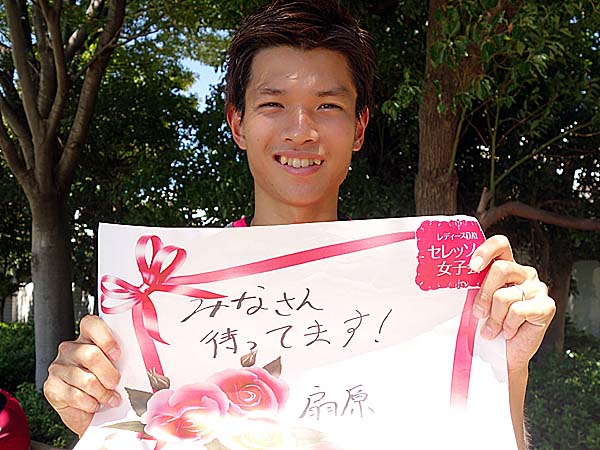 レディースDAY
セレッソ
女子会
みなさん
待ってます!
扇原